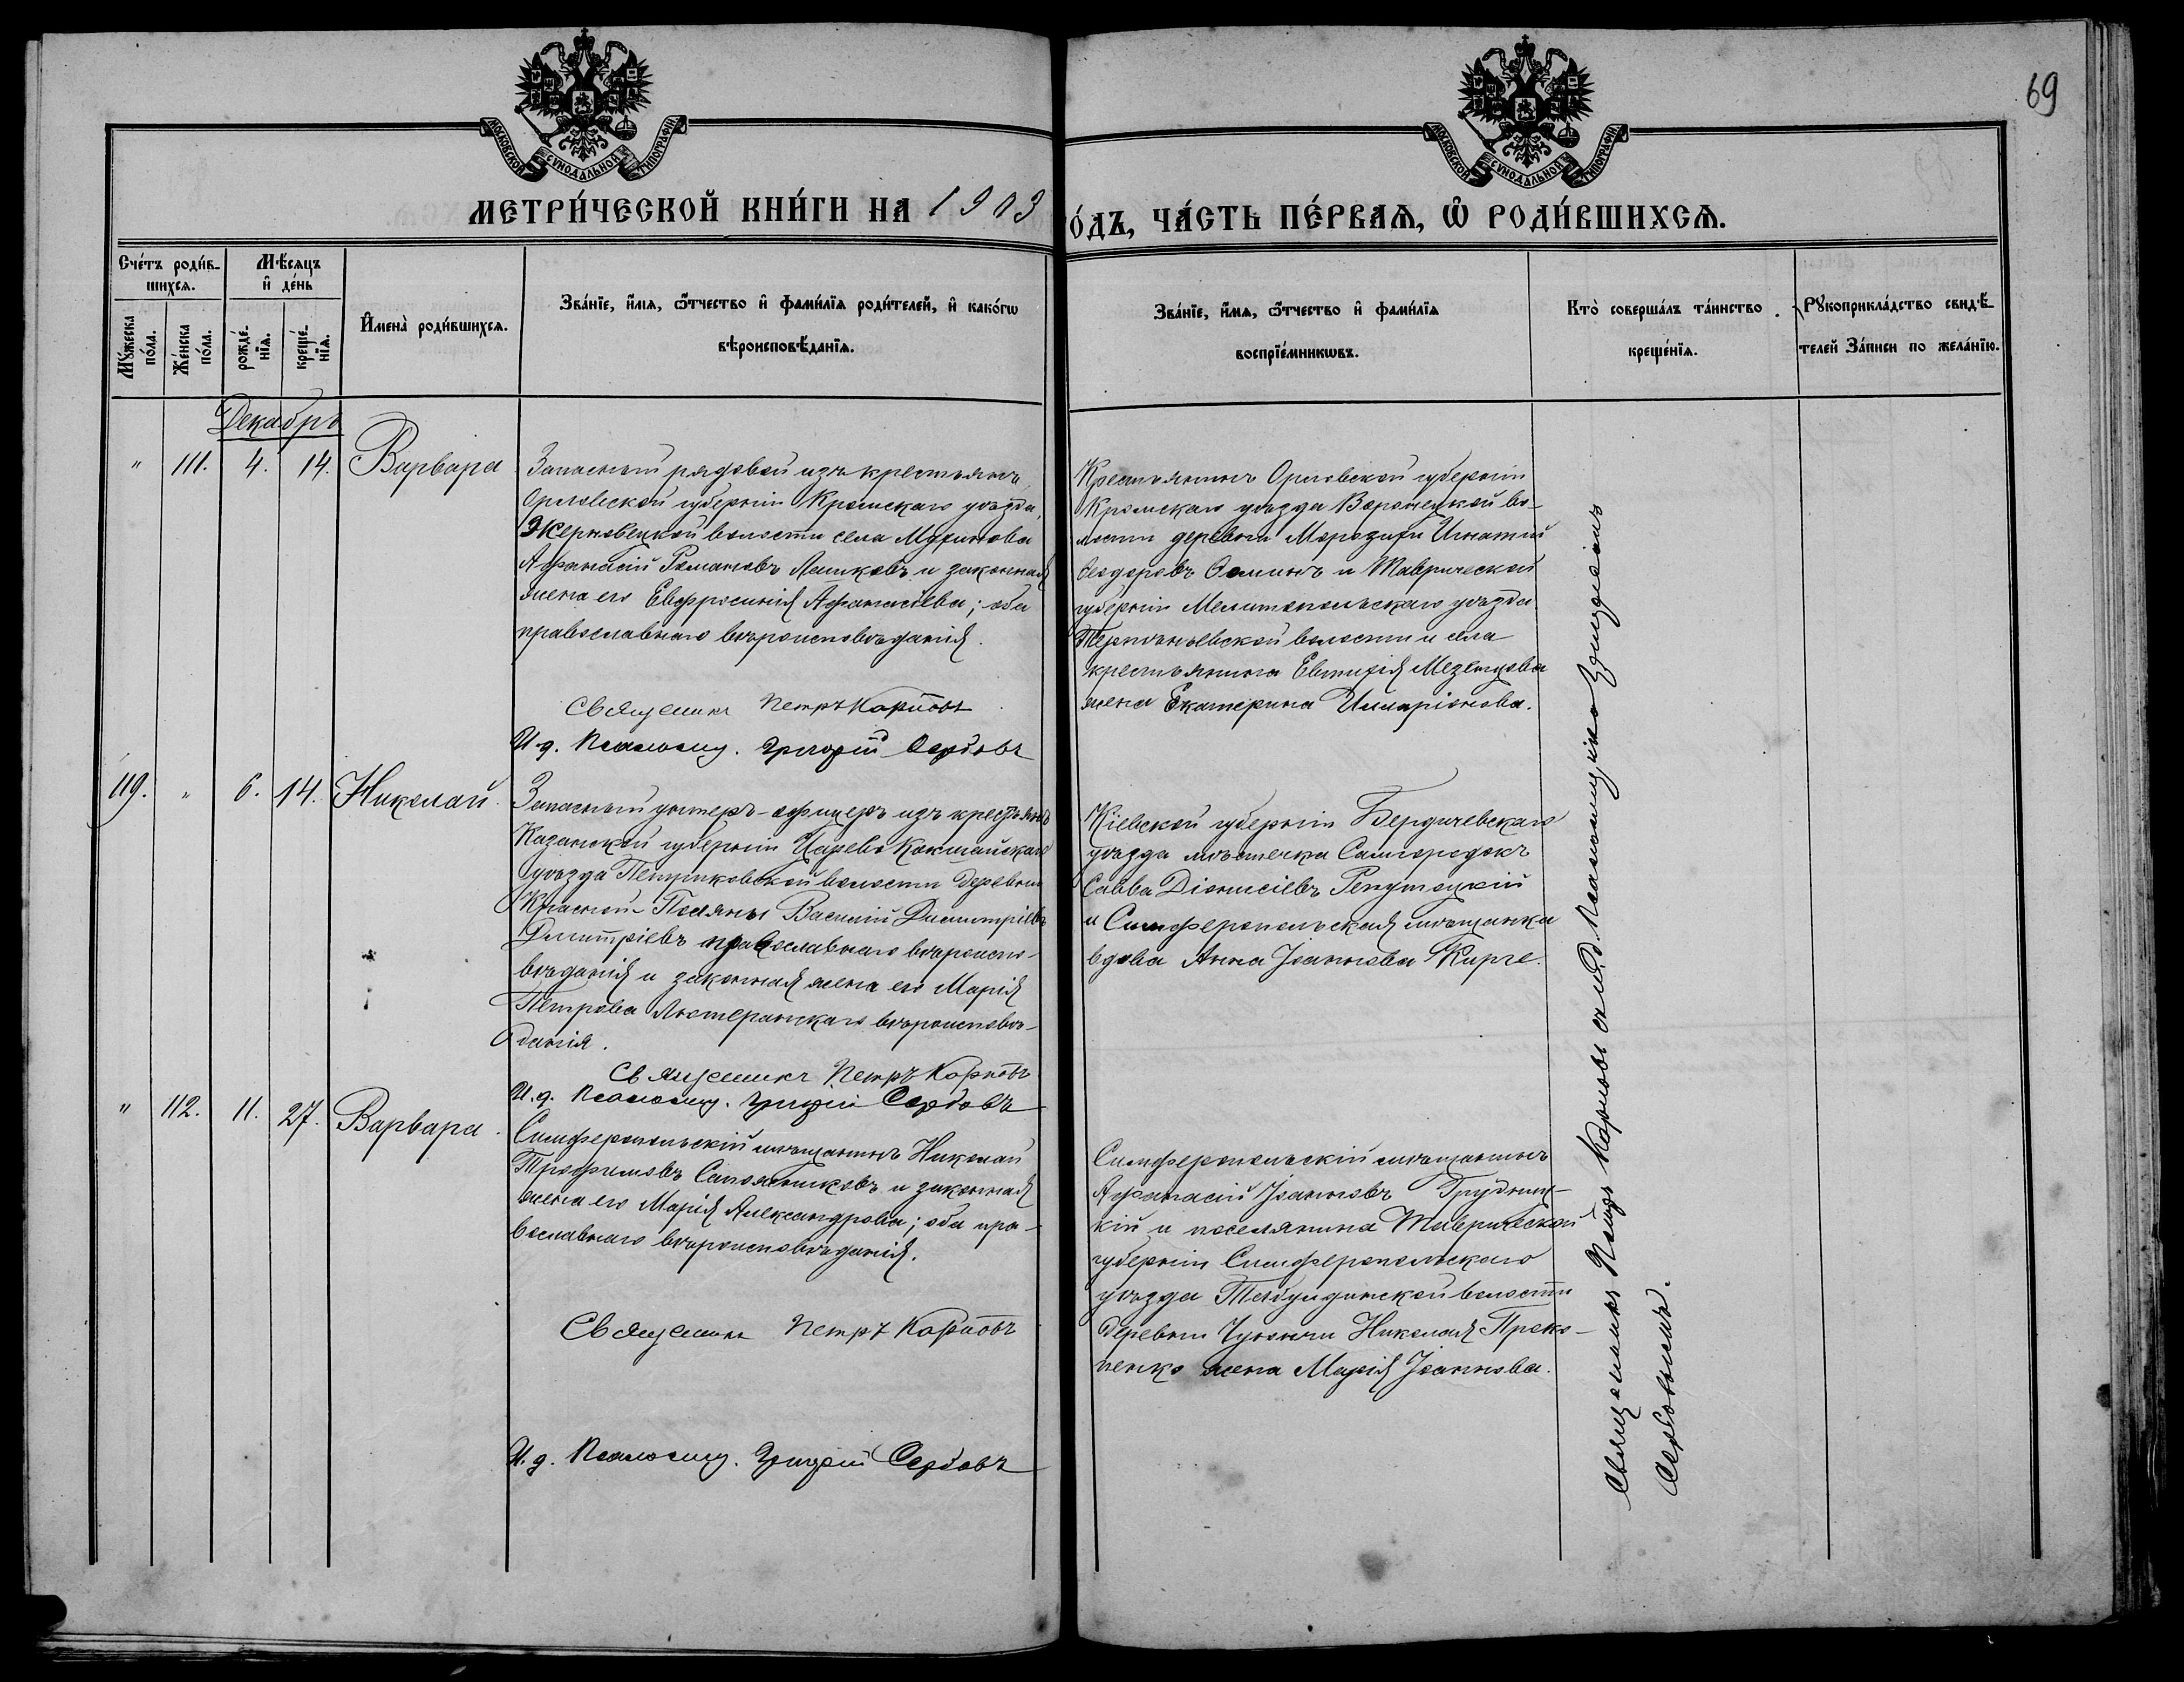 69
МОСКОВСКОЙ СУНОДАЛЬНОЙ ТИПОГРАФІИ
МОСКОВСКОЙ СУНОДАЛЬНОЙ ТИПОГРАФІИ
МЕТРИ́ЧЕСКОЙ КНИ́ГИ НА 1903
О́ДЪ, ЧА́СТЬ ПЕ́РВАѦ, Ѡ҆ РОДИ́ВШИХСѦ.
Сче́тъ роди́в-
шихсѧ.
Мꙋжеска
по́ла.
Же́нска
по́ла.
Мѣ́сѧцъ
и҆ де́нь
рожде́-
нїѧ.
креще́-
нїѧ.
И҆мена̀ роди́вшихсѧ.
Зва́нїе, и҆́мѧ, ѻ҆́тчество и҆ фами́лїѧ роди́телей, и҆ како́гѡ
вѣроисповѣ́данїѧ.
Зва́нїе, и҆́мѧ, ѻ҆́тчество и҆ фами́лїѧ
воспрїе́мникѡвъ.
Кто̀ соверша́лъ та́инство
креще́нїѧ.
Рꙋкоприкла́дство свидѣ́-
телей За́писи по жела́нїю.
Декабрь
" 111. 4. 14. Варвара
Запасный рядовой изъ крестьянъ
Орловской губерніи Кромскаго уѣзда,
Жерновецкой волости села Мухинова
Афанасій Романовъ Лашковъ и законная
жена его Евфросинія Афанасіева; оба
православнаго вѣроисповѣданія.
Священникъ Петръ Карповъ
И. д. Псаломщ. Григорій Сербовъ
Крестьянинъ Орловской губерніи
Кромскаго уѣзда Воронецкой во-
лости деревни Морозихи Игнатій
Ѳеодоровъ Ѳоминъ и Таврической
губерніи Мелитопольскаго уѣзда
Терпѣньевской волости и села
крестьянина Евтихія Мезенцова
жена Екатерина Илларіонова.
119. " 6. 14. Николай
Запасный унтеръ-офицеръ изъ крестьянъ
Казанской губерніи Царево Кокшайскаго
уѣзда Петриковской волости деревни
Красной-Поляны Василій Димитріевъ
Дмитріевъ православнаго вѣроиспо-
вѣданія и законная жена его Марія
Петрова Лютеранскаго вѣроисповѣ-
данія.
Священникъ Петръ Карповъ
И. д. Псаломщ. Григорій Сербовъ
Кіевской губерніи Бердичевскаго
уѣзда мѣстечка Самгородокъ
Савва Діонисіевъ Репутацкій
и Симферопольская мѣщанка
вдова Анна Іоаннова Кирге.
" 112. 11. 27. Варвара.
Симферопольскій мѣщанинъ Николай
Трофимовъ Сапожниковъ и законная
жена его Марія Александрова; оба пра-
вославнаго вѣроисповѣданія.
Священникъ Петръ Карповъ
И. д. Псаломщ. Григорій Сербовъ
Симферопольскій мѣщанинъ
Афанасій Іоанновъ Грудниц-
кій и поселянина Таврической
губерніи Симферопольскаго
уѣзда Табулдинской волости
деревни Чуюнчи Николая Проко-
пенко жена Марія Іоаннова.
Священникъ Петръ Карповъ съ и.д. псаломщика Григоріемъ
Сербовымъ.